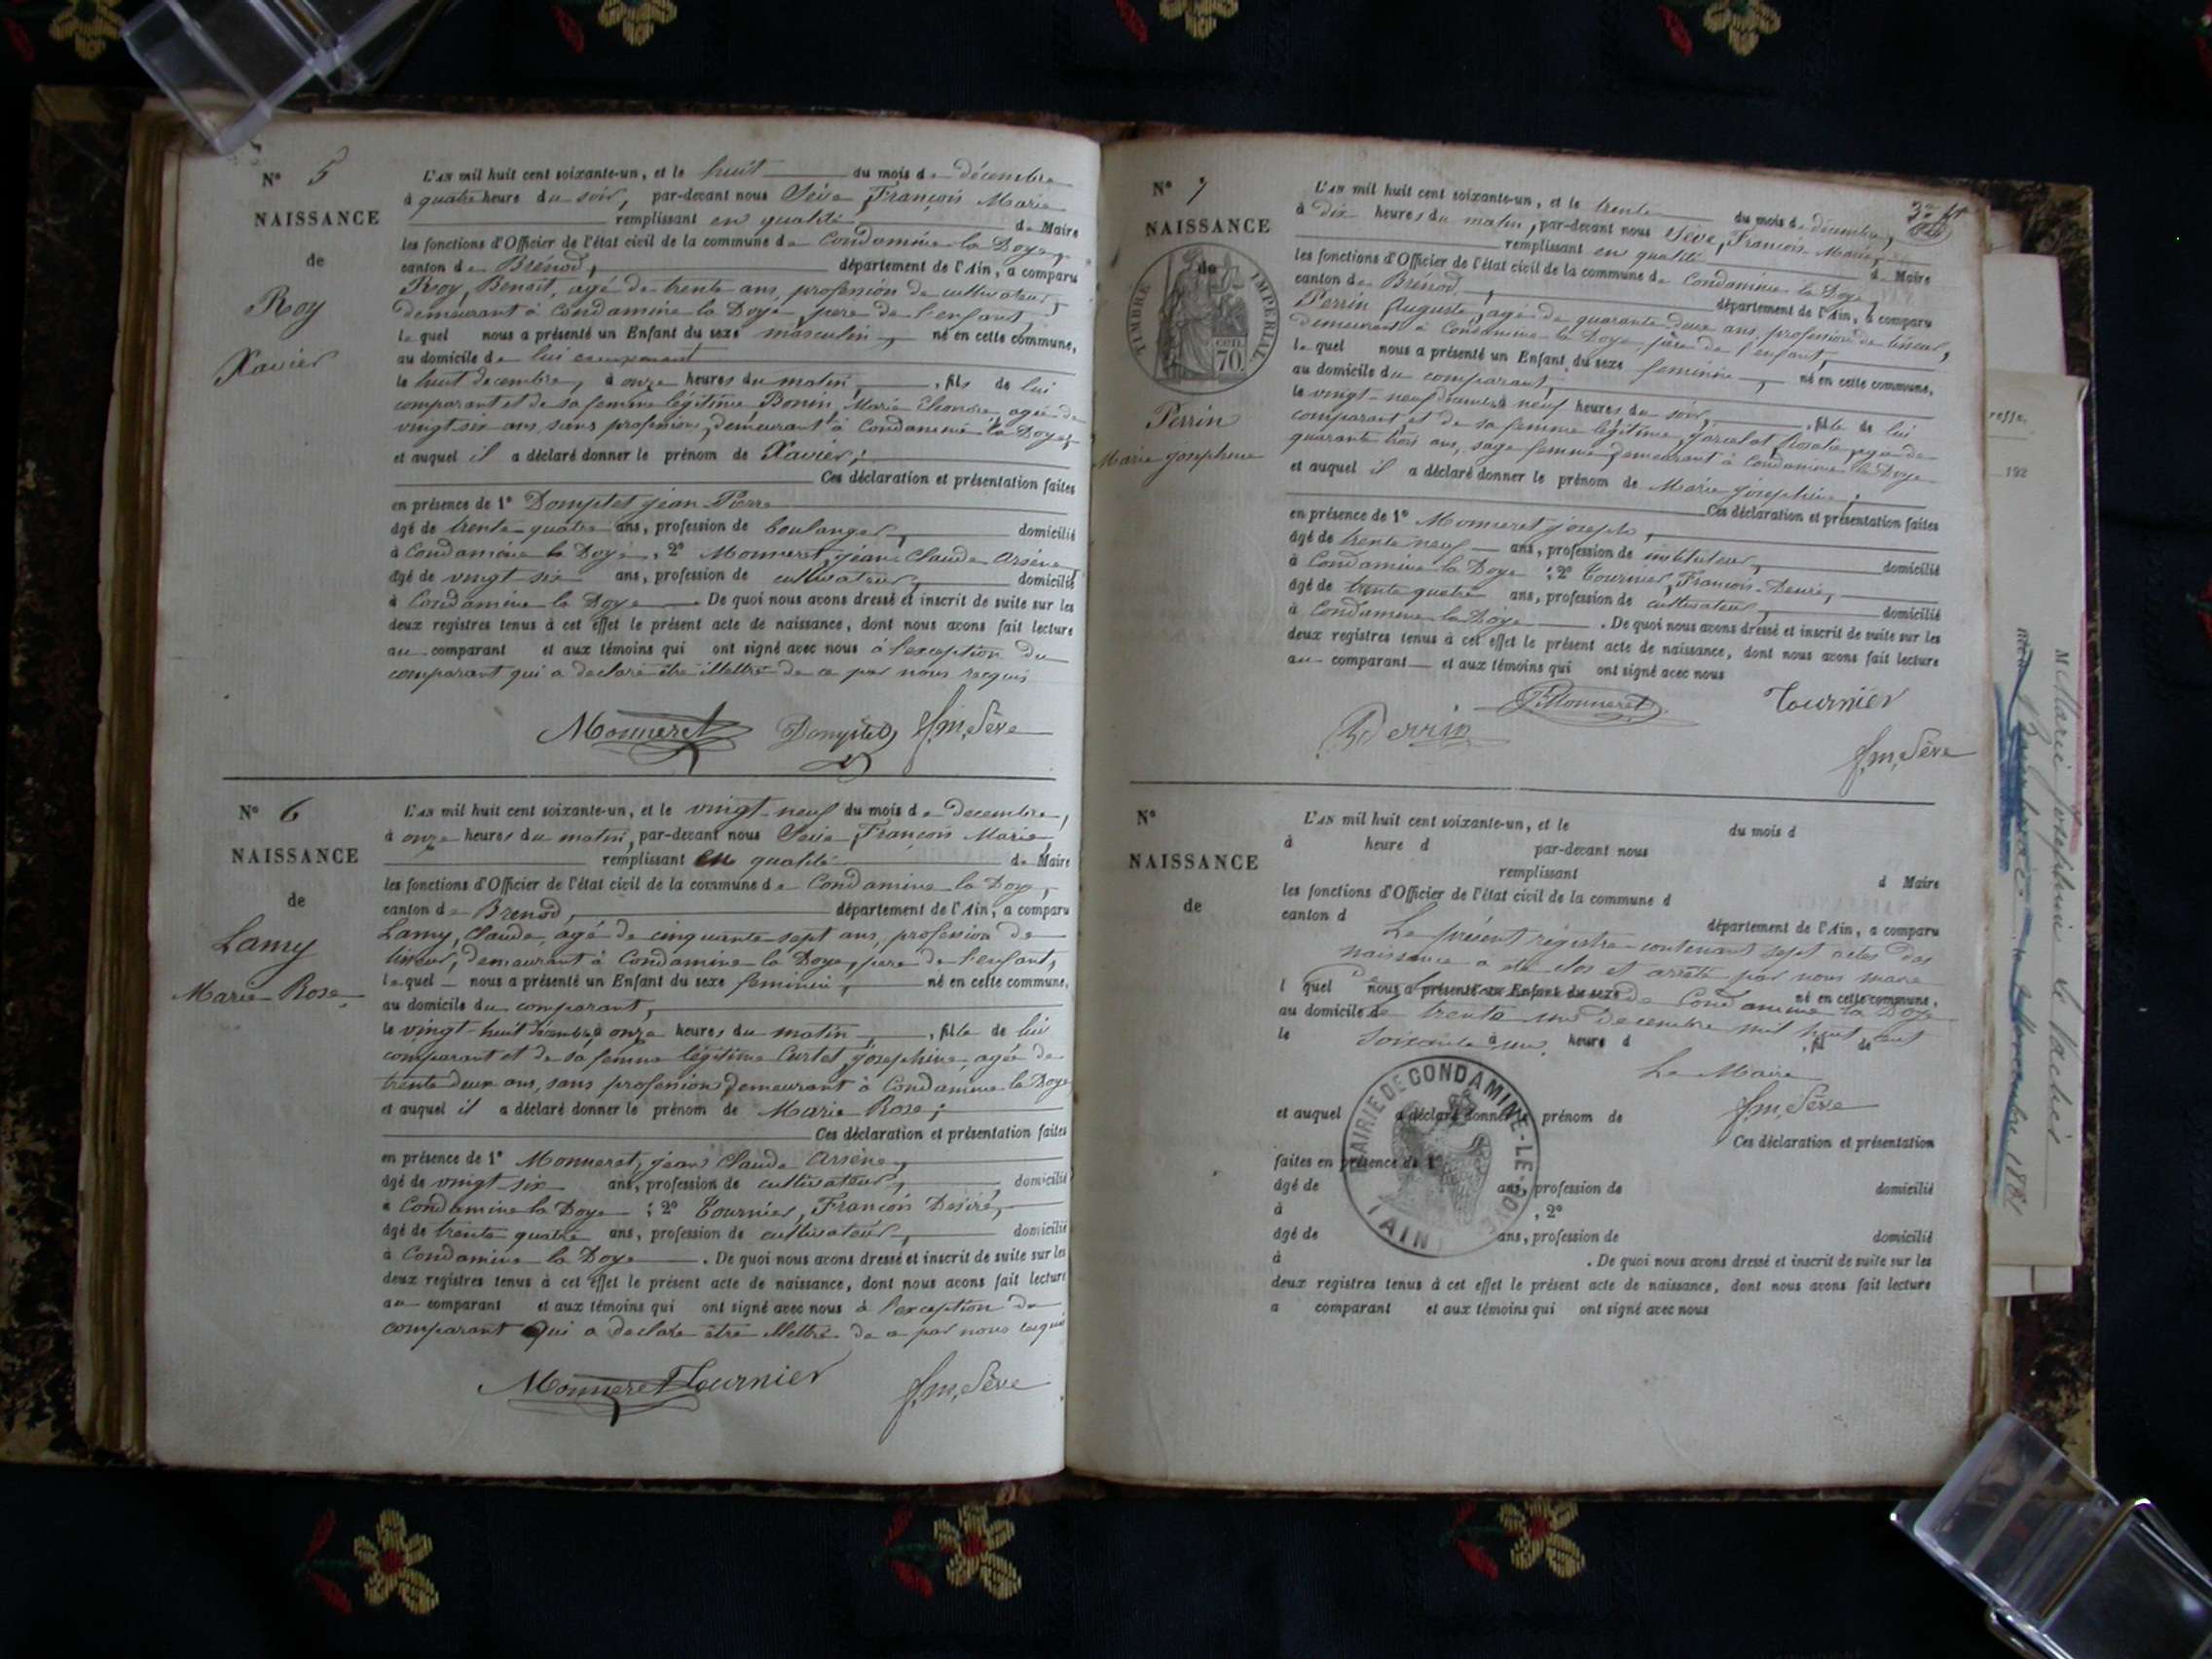 N° 5
NAISSANCE
de
Roy
Xavier
L'AN mil huit cent soixante-un, et le huit du mois de décembre
à quatre heure du soir, par-devant nous Sève, François Marie
remplissant en qualité de Maire
les fonctions d'Officier de l'état civil de la commune de Condamine la Doye,
canton de Brénod, département de l'Ain, a comparu
Roy, Benoit, agé de trente ans, profession de cultivateur,
demeurant à Condamine la Doye, père de l'enfant,
lequel nous a présenté un Enfant du sexe masculin, né en cette commune,
au domicile de lui comparant
le huit decembre, à onze heures du matin, fils de lui
comparant et de sa femme légitime Bonin, Marie agée de
vingt six ans, sans profession, demeurant à Condamine la Doye,
et auquel il a déclaré donner le prénom de Xavier;
Ces déclaration et présentation faites
en présence de 1° Domptet jean Pierre
âgé de trente quatre ans, profession de boulanger, domicilié
à Condamine la Doye, 2° Monneret, jean Claude Arsène
âgé de vingt six ans, profession de cultivateur, domicilié
à Condamine la Doye. De quoi nous avons dressé et inscrit de suite sur les
deux registres tenus à cet effet le présent acte de naissance, dont nous avons fait lecture
au comparant et aux témoins qui ont signé avec nous à l'exception du
comparant qui a declaré être illettré de ce par nous requis
Monneret Domptet f.m. Sève
N° 6
NAISSANCE
de
Lamy
Marie Rose
L'AN mil huit cent soixante-un, et le vingt-neuf du mois de decembre,
à onze heures du matin, par-devant nous Sève, François Marie
remplissant en qualité de Maire
les fonctions d'Officier de l'état civil de la commune de Condamine la Doye,
canton de Brenod, département de l'Ain, a comparu
Lamy, Claude, agé de cinquante-sept ans, profession de
tisseur, demeurant à Condamine la Doye, père de l'enfant,
lequel nous a présenté un Enfant du sexe feminin, né en cette commune,
au domicile du comparant,
le vingt-huit décembre à onze heures du matin, fille de lui
comparant et de sa femme légitime Curtet, josephine, agée de
trente deux ans, sans profession, demeurant à Condamine la Doye
et auquel il a déclaré donner le prénom de Marie Rose;
Ces déclaration et présentation faites
en présence de 1° Monneret, jean Claude Arsène,
âgé de vingt six ans, profession de cultivateur, domicilié
à Condamine la Doye; 2° Tournier, François Desiré,
âgé de trente quatre ans, profession de cultivateur, domicilié
à Condamine la Doye. De quoi nous avons dressé et inscrit de suite sur les
deux registres tenus à cet effet le présent acte de naissance, dont nous avons fait lecture
au comparant et aux témoins qui ont signé avec nous à l'exception du
comparant qui a declaré être illettré de ce par nous requis
Monneret Tournier f.m. Sève
N° 7
NAISSANCE
de
TIMBRE IMPERIAL
CEN. 70.
Perrin
Marie josephine
L'AN mil huit cent soixante-un, et le trente du mois de décembre,
à dix heures du matin, par-devant nous Sève, François Marie,
remplissant en qualité de Maire
les fonctions d'Officier de l'état civil de la commune de Condamine la Doye,
canton de Brénod, département de l'Ain, a comparu
Perrin Auguste, agé de quarante deux ans, profession de tisseur,
demeurant à Condamine la Doye, père de l'enfant,
lequel nous a présenté un Enfant du sexe feminin, né en cette commune,
au domicile du comparant,
le vingt-neuf décembre à neuf heures du soir, fille de lui
comparant et de sa femme légitime, agée de
quarante trois ans, sage femme, demeurant à Condamine la Doye
et auquel il a déclaré donner le prénom de Marie josephine;
Ces déclaration et présentation faites
en présence de 1° Monneret joseph,
âgé de trente neuf ans, profession de instituteur, domicilié
à Condamine la Doye; 2° Tournier, François Desiré,
âgé de trente quatre ans, profession de cultivateur, domicilié
à Condamine la Doye. De quoi nous avons dressé et inscrit de suite sur les
deux registres tenus à cet effet le présent acte de naissance, dont nous avons fait lecture
au comparant et aux témoins qui ont signé avec nous
Perrin Monneret Tournier
f.m. Sève
N°
NAISSANCE
de
L'AN mil huit cent soixante-un, et le du mois d
à heure d par-devant nous
remplissant d Maire
les fonctions d'Officier de l'état civil de la commune d
canton d département de l'Ain, a comparu
Le présent registre contenant sept actes de
naissance a été clos et arrêté par nous maire
l quel nous a présenté un Enfant du sexe né en cette commune,
de Condamine la Doye
au domicile de
le trente un Decembre mil huit cent
le heure d , fil de
soixante un.
Le Maire
f.m. Sève
et auquel a déclaré donner le prénom de
MAIRIE DE CONDAMINE-LE-DOIE
(AIN)
Ces déclaration et présentation
faites en présence de 1°
âgé de ans, profession de domicilié
à , 2°
âgé de ans, profession de domicilié
à . De quoi nous avons dressé et inscrit de suite sur les
deux registres tenus à cet effet le présent acte de naissance, dont nous avons fait lecture
a comparant et aux témoins qui ont signé avec nous
192
M Marie Josephine